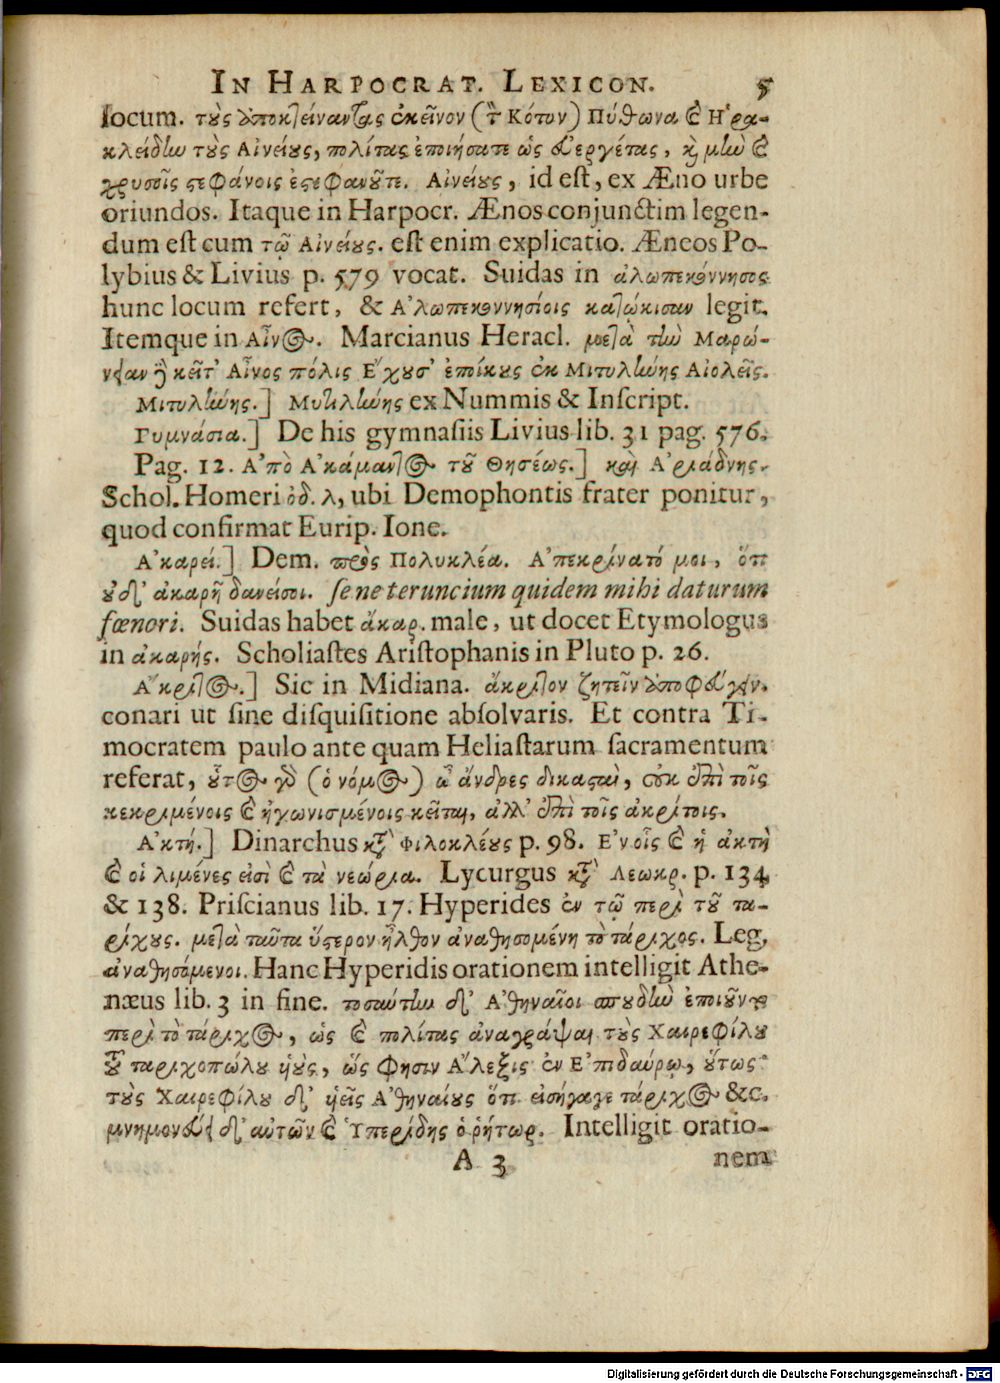 IN HARPOCRAT. LEXICON. 5
locum. τοὺς ἀποκτείναντας ἐκεῖνον (τὸν Κότυν) Πύθωνα καὶ Ἡρα-
κλείδην τοὺς Αἰνείους, πολίτας ἐποιήσατε ὡς εὐεργέτας, καὶ μὴν καὶ
χρυσοῖς στεφάνοις ἐστεφανοῦτε. Αἰνείους, id est, ex Æno urbe
oriundos. Itaque in Harpocr. Ænos conjunctim legen-
dum est cum τῷ Αἰνείους. est enim explicatio. Æneos Po-
lybius & Livius p. 579 vocat. Suidas in ἀλωπεκόννησος
hunc locum refert, & Ἀλωπεκοννησίοις κατῴκισαν legit.
Itemque in Αἶνος. Marcianus Heracl. μετὰ τὴν Μαρώ-
νειαν δὲ κεῖτ' Αἶνος πόλις Ἔχουσ' ἐποίκους ἐκ Μιτυλήνης Αἰολεῖς.
Μιτυλήνης.] Μυτιλήνης ex Nummis & Inscript.
Γυμνάσια.] De his gymnasiis Livius lib. 31 pag. 576.
Pag. 12. Ἀπὸ Ἀκάμαντος τοῦ Θησέως.] καὶ Ἀριάδνης.
Schol. Homeri ὀδ. λ, ubi Demophontis frater ponitur,
quod confirmat Eurip. Ione.
Ἀκαρεί.] Dem. πρὸς Πολυκλέα. Ἀπεκρίνατό μοι, ὅτι
οὐδ' ἀκαρῆ δανείσοι. se ne teruncium quidem mihi daturum
fœnori. Suidas habet ἄκαρ. male, ut docet Etymologus
in ἀκαρής. Scholiastes Aristophanis in Pluto p. 26.
Ἄκριτος.] Sic in Midiana. ἄκριτον ζητεῖν ἀποφεύγειν.
conari ut sine disquisitione absolvaris. Et contra Ti-
mocratem paulo ante quam Heliastarum sacramentum
referat, οὗτος γὰρ (ὁ νόμος) ὦ ἄνδρες δικασταὶ, οὐκ ἐπὶ τοῖς
κεκριμένοις καὶ ἠγωνισμένοις κεῖται, ἀλλ' ἐπὶ τοῖς ἀκρίτοις.
Ἀκτή.] Dinarchus κατὰ Φιλοκλέους p. 98. Ἐν οἷς καὶ ἡ ἀκτὴ
καὶ οἱ λιμένες εἰσὶ καὶ τὰ νεώρια. Lycurgus κατὰ Λεωκρ. p. 134
& 138. Priscianus lib. 17. Hyperides ἐν τῷ περὶ τοῦ τα-
ρίχους. μετὰ ταῦτα ὕστερον ἦλθον ἀναθησομένη τὸ τάριχος. Leg.
ἀναθησόμενοι. Hanc Hyperidis orationem intelligit Athe-
næus lib. 3 in fine. τοσαύτην δ' Ἀθηναῖοι σπουδὴν ἐποιοῦντο
περὶ τὸ τάριχος, ὡς καὶ πολίτας ἀναγράψαι τοὺς Χαιρεφίλου
τοῦ ταριχοπώλου υἱοὺς, ὥς φησιν Ἄλεξις ἐν Ἐπιδαύρῳ, οὕτως
τοὺς Χαιρεφίλου δ' υἱεῖς Ἀθηναίους ὅτι εἰσήγαγε τάριχος &c.
μνημονεύει δ' αὐτῶν καὶ Ὑπερίδης ὁ ῥήτωρ. Intelligit oratio-
A 3 nem
Digitalisierung gefördert durch die Deutsche Forschungsgemeinschaft - DFG